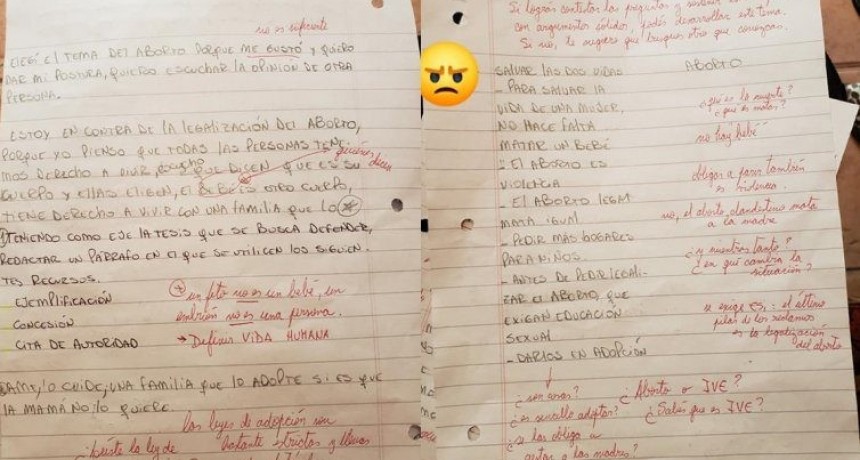 no es suficiente
ELEGÍ EL TEMA DEL ABORTO PORQUE ME GUSTÓ Y QUIERO
DAR MI POSTURA, QUIERO ESCUCHAR LA OPINIÓN DE OTRA
PERSONA.
ESTOY EN CONTRA DE LA LEGALIZACIÓN DEL ABORTO,
PORQUE YO PIENSO QUE TODAS LAS PERSONAS TENE-
MOS DERECHO A VIVIR, QUE DICEN QUE ES SU
quiénes dicen
CUERPO Y ELLAS ELIGEN, EL BEBÉ ES OTRO CUERPO,
TIENE DERECHO A VIVIR CON UNA FAMILIA QUE LO
TENIENDO COMO EJE LA TESIS QUE SE BUSCA DEFENDER,
REDACTAR UN PÁRRAFO EN EL QUE SE UTILICEN LOS SIGUIEN-
TES RECURSOS.
EJEMPLIFICACIÓN
un feto no es un bebé, un
embrión no es una persona.
CONCESIÓN
CITA DE AUTORIDAD
→ Definir VIDA HUMANA
AME, LO CUIDE, UNA FAMILIA QUE LO ADOPTE SI ES QUE
LA MAMÁ NO LO QUIERE.
Las leyes de adopción son
la ley de
bastante estrictas y llevas
Si lográs contestar las preguntas y
con argumentos sólidos, podés desarrollar este tema.
Si no, te sugiero que busques otro que convenza.
SALVAR LAS DOS VIDAS
ABORTO
- PARA SALVAR LA
VIDA DE UNA MUJER,
NO HACE FALTA
MATAR UN BEBÉ
¿qué es la muerte?
¿qué es matar?
no hay bebé
- EL ABORTO ES
VIOLENCIA
obligar a parir también
es violencia.
- EL ABORTO LEGAL
MATA IGUAL
no, el aborto clandestino mata
a la madre
- PEDIR MÁS HOGARES
PARA NIÑOS
¿y mientras tanto?
¿en qué cambia la
situación?
- ANTES DE PEDIR LEGALI-
ZAR EL ABORTO, QUE
EXIGAN EDUCACIÓN
SEXUAL
se exige ESI: el último
pilar de los reclamos
es la legalización
del aborto
- DARLOS EN ADOPCIÓN
¿son cosas?
¿Aborto o IVE?
¿es sencillo adoptar?
¿Sabés qué es IVE?
¿se las obliga a
gestar a las madres?